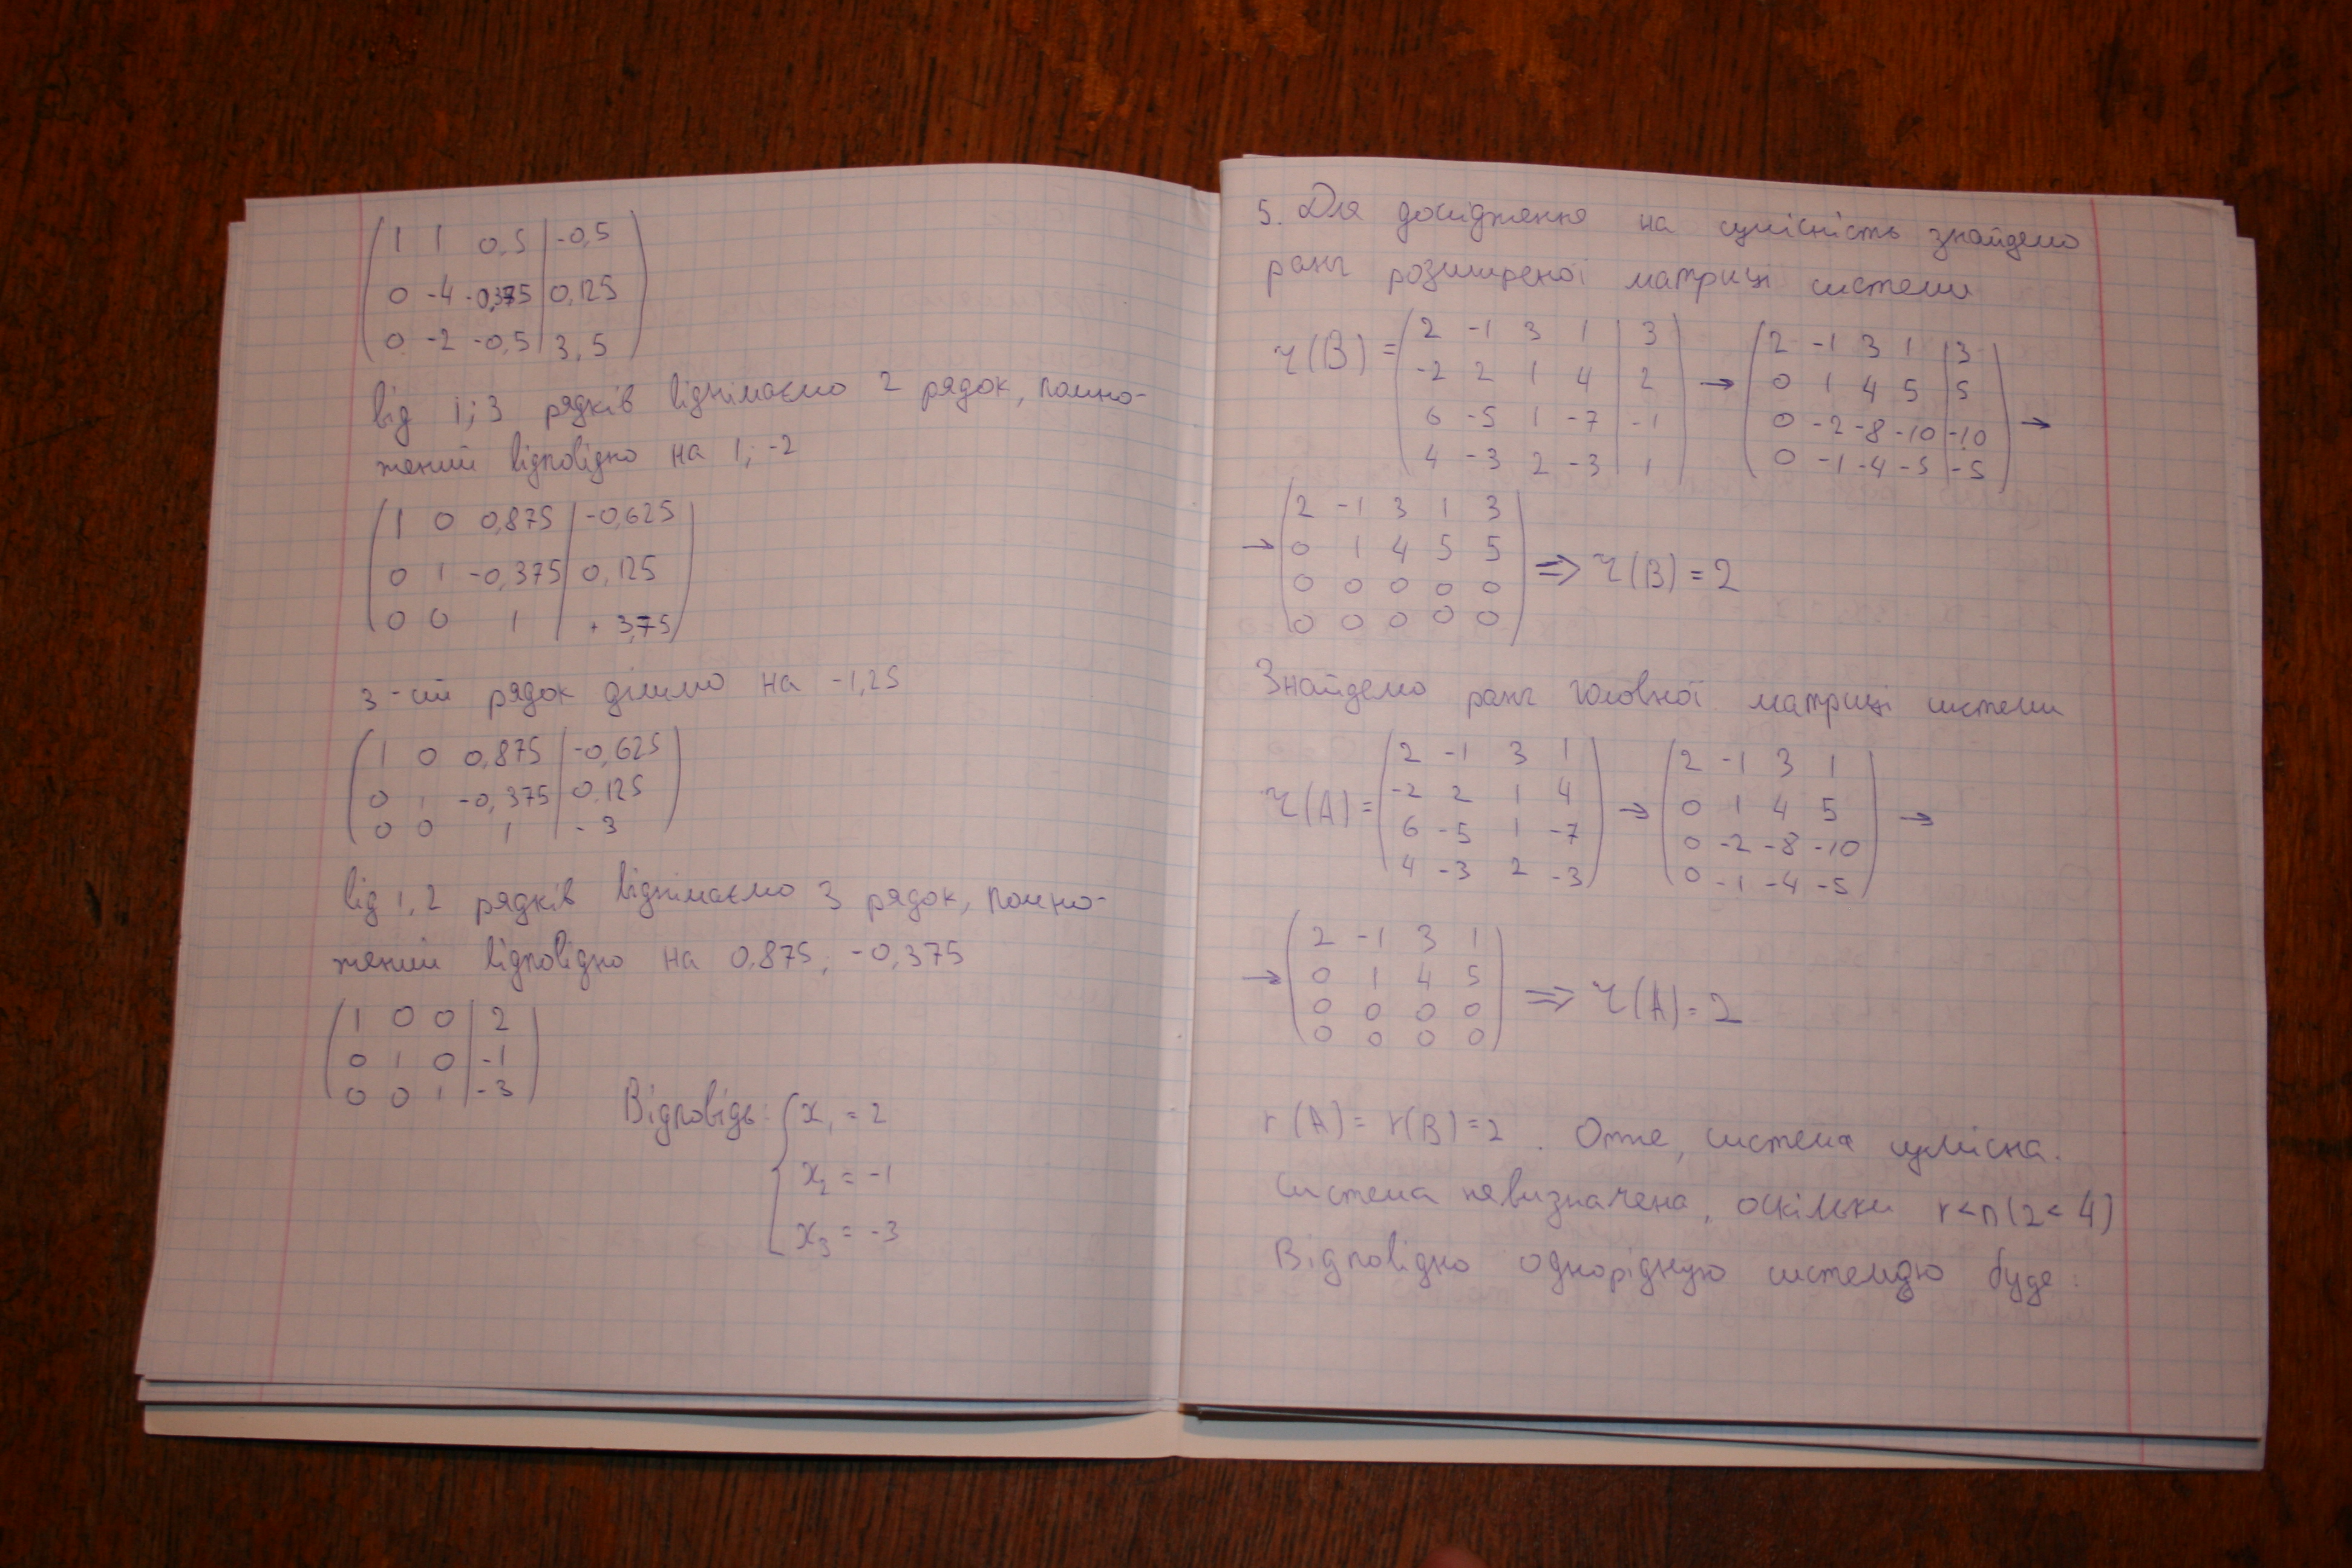 1 1 0,5 | -0,5
0 -4 -0,375 | 0,125
0 -2 -0,5 | 3,5
від 1; 3 рядків віднімаємо 2 рядок, помно-
жений відповідно на 1; -2
1 0 0,875 | -0,625
0 1 -0,375 | 0,125
0 0 1 | + 3,75
3-ій рядок ділимо на -1,25
1 0 0,875 | -0,625
0 1 -0,375 | 0,125
0 0 1 | -3
від 1, 2 рядків віднімаємо 3 рядок, помно-
жений відповідно на 0,875; -0,375
1 0 0 | 2
0 1 0 | -1
0 0 1 | -3
Відповідь: { x₁ = 2
x₂ = -1
x₃ = -3
5. Для дослідження на сумісність знайдемо
ранг розширеної матриці системи
r(B) = ( 2 -1 3 1 | 3 ) → ( 2 -1 3 1 | 3 ) →
-2 2 1 4 | 2   0 1 4 5 | 5
6 -5 1 -7 | -1   0 -2 -8 -10 | -10
4 -3 2 -3 | 1   0 -1 -4 -5 | -5
→ ( 2 -1 3 1 3 )
0 1 4 5 5 ⇒ r(B) = 2
0 0 0 0 0
0 0 0 0 0
Знайдемо ранг головної матриці системи
r(A) = ( 2 -1 3 1 ) → ( 2 -1 3 1 ) →
-2 2 1 4   0 1 4 5
6 -5 1 -7   0 -2 -8 -10
4 -3 2 -3   0 -1 -4 -5
→ ( 2 -1 3 1 )
0 1 4 5 ⇒ r(A) = 2
0 0 0 0
0 0 0 0
r(A) = r(B) = 2 . Отже, система сумісна.
система невизначена, оскільки r < n (2 < 4)
Відповідно однорідную системою буде: